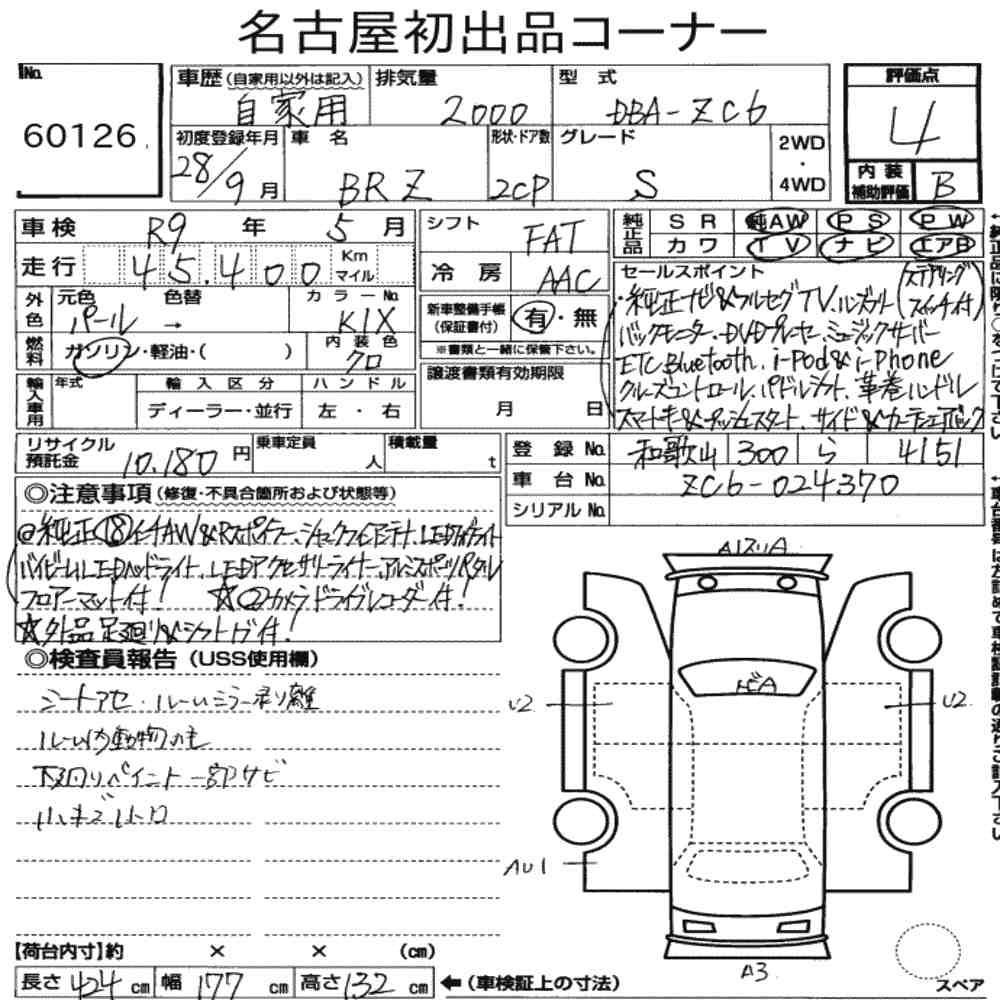 名古屋初出品コーナー
No. 60126
車歴(自家用以外は記入) 自家用
排気量 2000
型式 DBA-ZC6
評価点 4
初度登録年月 28/9月
車名 BRZ
形状・ドア数 2CP
グレード S
2WD・4WD
内装補助評価 B
車検 R9年 5月
シフト FAT
純正品 SR 純AW PS PW
カワ TV ナビ エアB
走行 45.400 Km マイル
冷房 AAC
セールスポイント (ステアリングスイッチ付)
外色 元色 パール → 色替
カラーNo. K1X
新車整備手帳(保証書付) 有・無
※書類と一緒に保管下さい。
・純正ナビ&フルセグTV、ハンズフリー
バックモニター、DVDプレーヤー、ミュージックサーバー
ETC、Bluetooth、i-Pod&i-Phone
クルーズコントロール、パドルシフト、革巻ハンドル
スマートキー&プッシュスタート、サイド&カーテンエアバック
燃料 ガソリン・軽油・( )
内装色 クロ
譲渡書類有効期限 月 日
輸入車用 年式 輸入区分 ディーラー・並行 ハンドル 左・右
リサイクル預託金 10.180円
乗車定員 人
積載量 t
登録No. 和歌山 300 ら 4151
車台No. ZC6-024370
シリアルNo.
◎注意事項(修復・不具合箇所および状態等)
◎純正18インチAW&Rスポイラー、シャークフィンアンテナ、LEDデイライト
ハイビームLEDヘッドライト、LEDアクセサリーライナー、アルミスポーツペダル
フロアーマット付! ☆②カメラドライブレコーダー付!
☆外品足廻り&シフトノブ付!
◎検査員報告(USS使用欄)
シートアセ・ルームミラー歪り離
ルーム内動物の毛
下回りペイント一部サビ
小キズ
AスリA
トビA
U2
U2
AU1
A3
【荷台内寸】約 × × (cm)
長さ 424 cm 幅 177 cm 高さ 132 cm ←(車検証上の寸法)
スペア